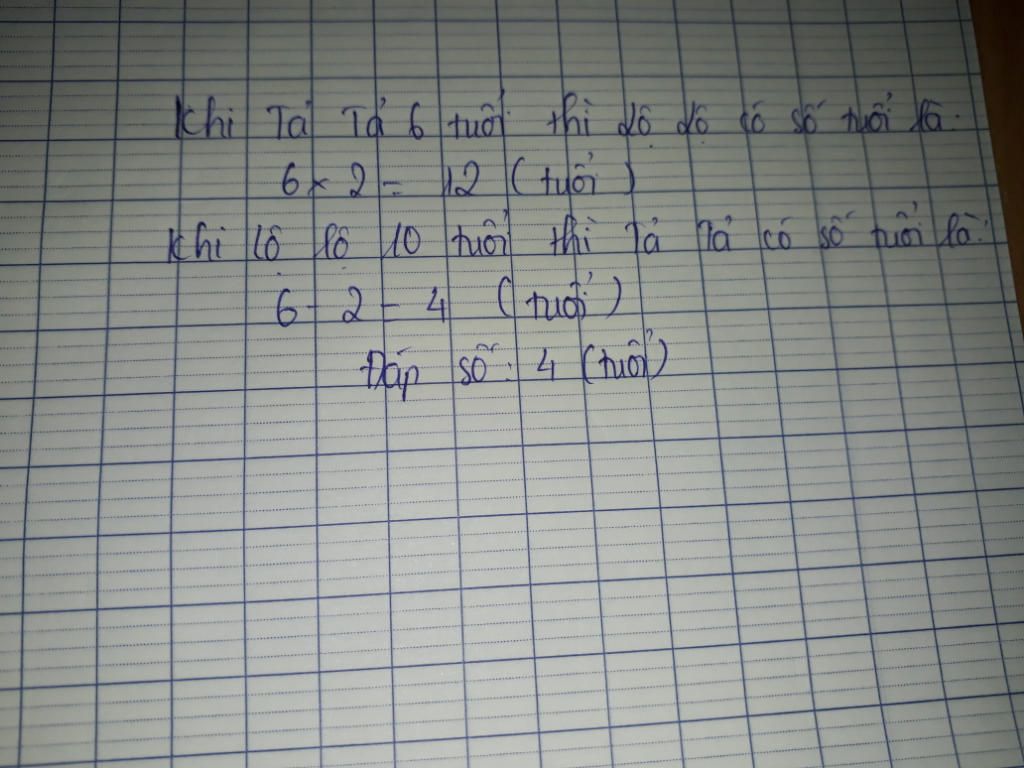 Khi Tả Tả 6 tuổi thì Lô Lô có số tuổi là:
6 × 2 = 12 (tuổi)
Khi Lô Lô 10 tuổi thì Tả Tả có số tuổi là:
6 - 2 = 4 (tuổi)
Đáp số: 4 (tuổi)